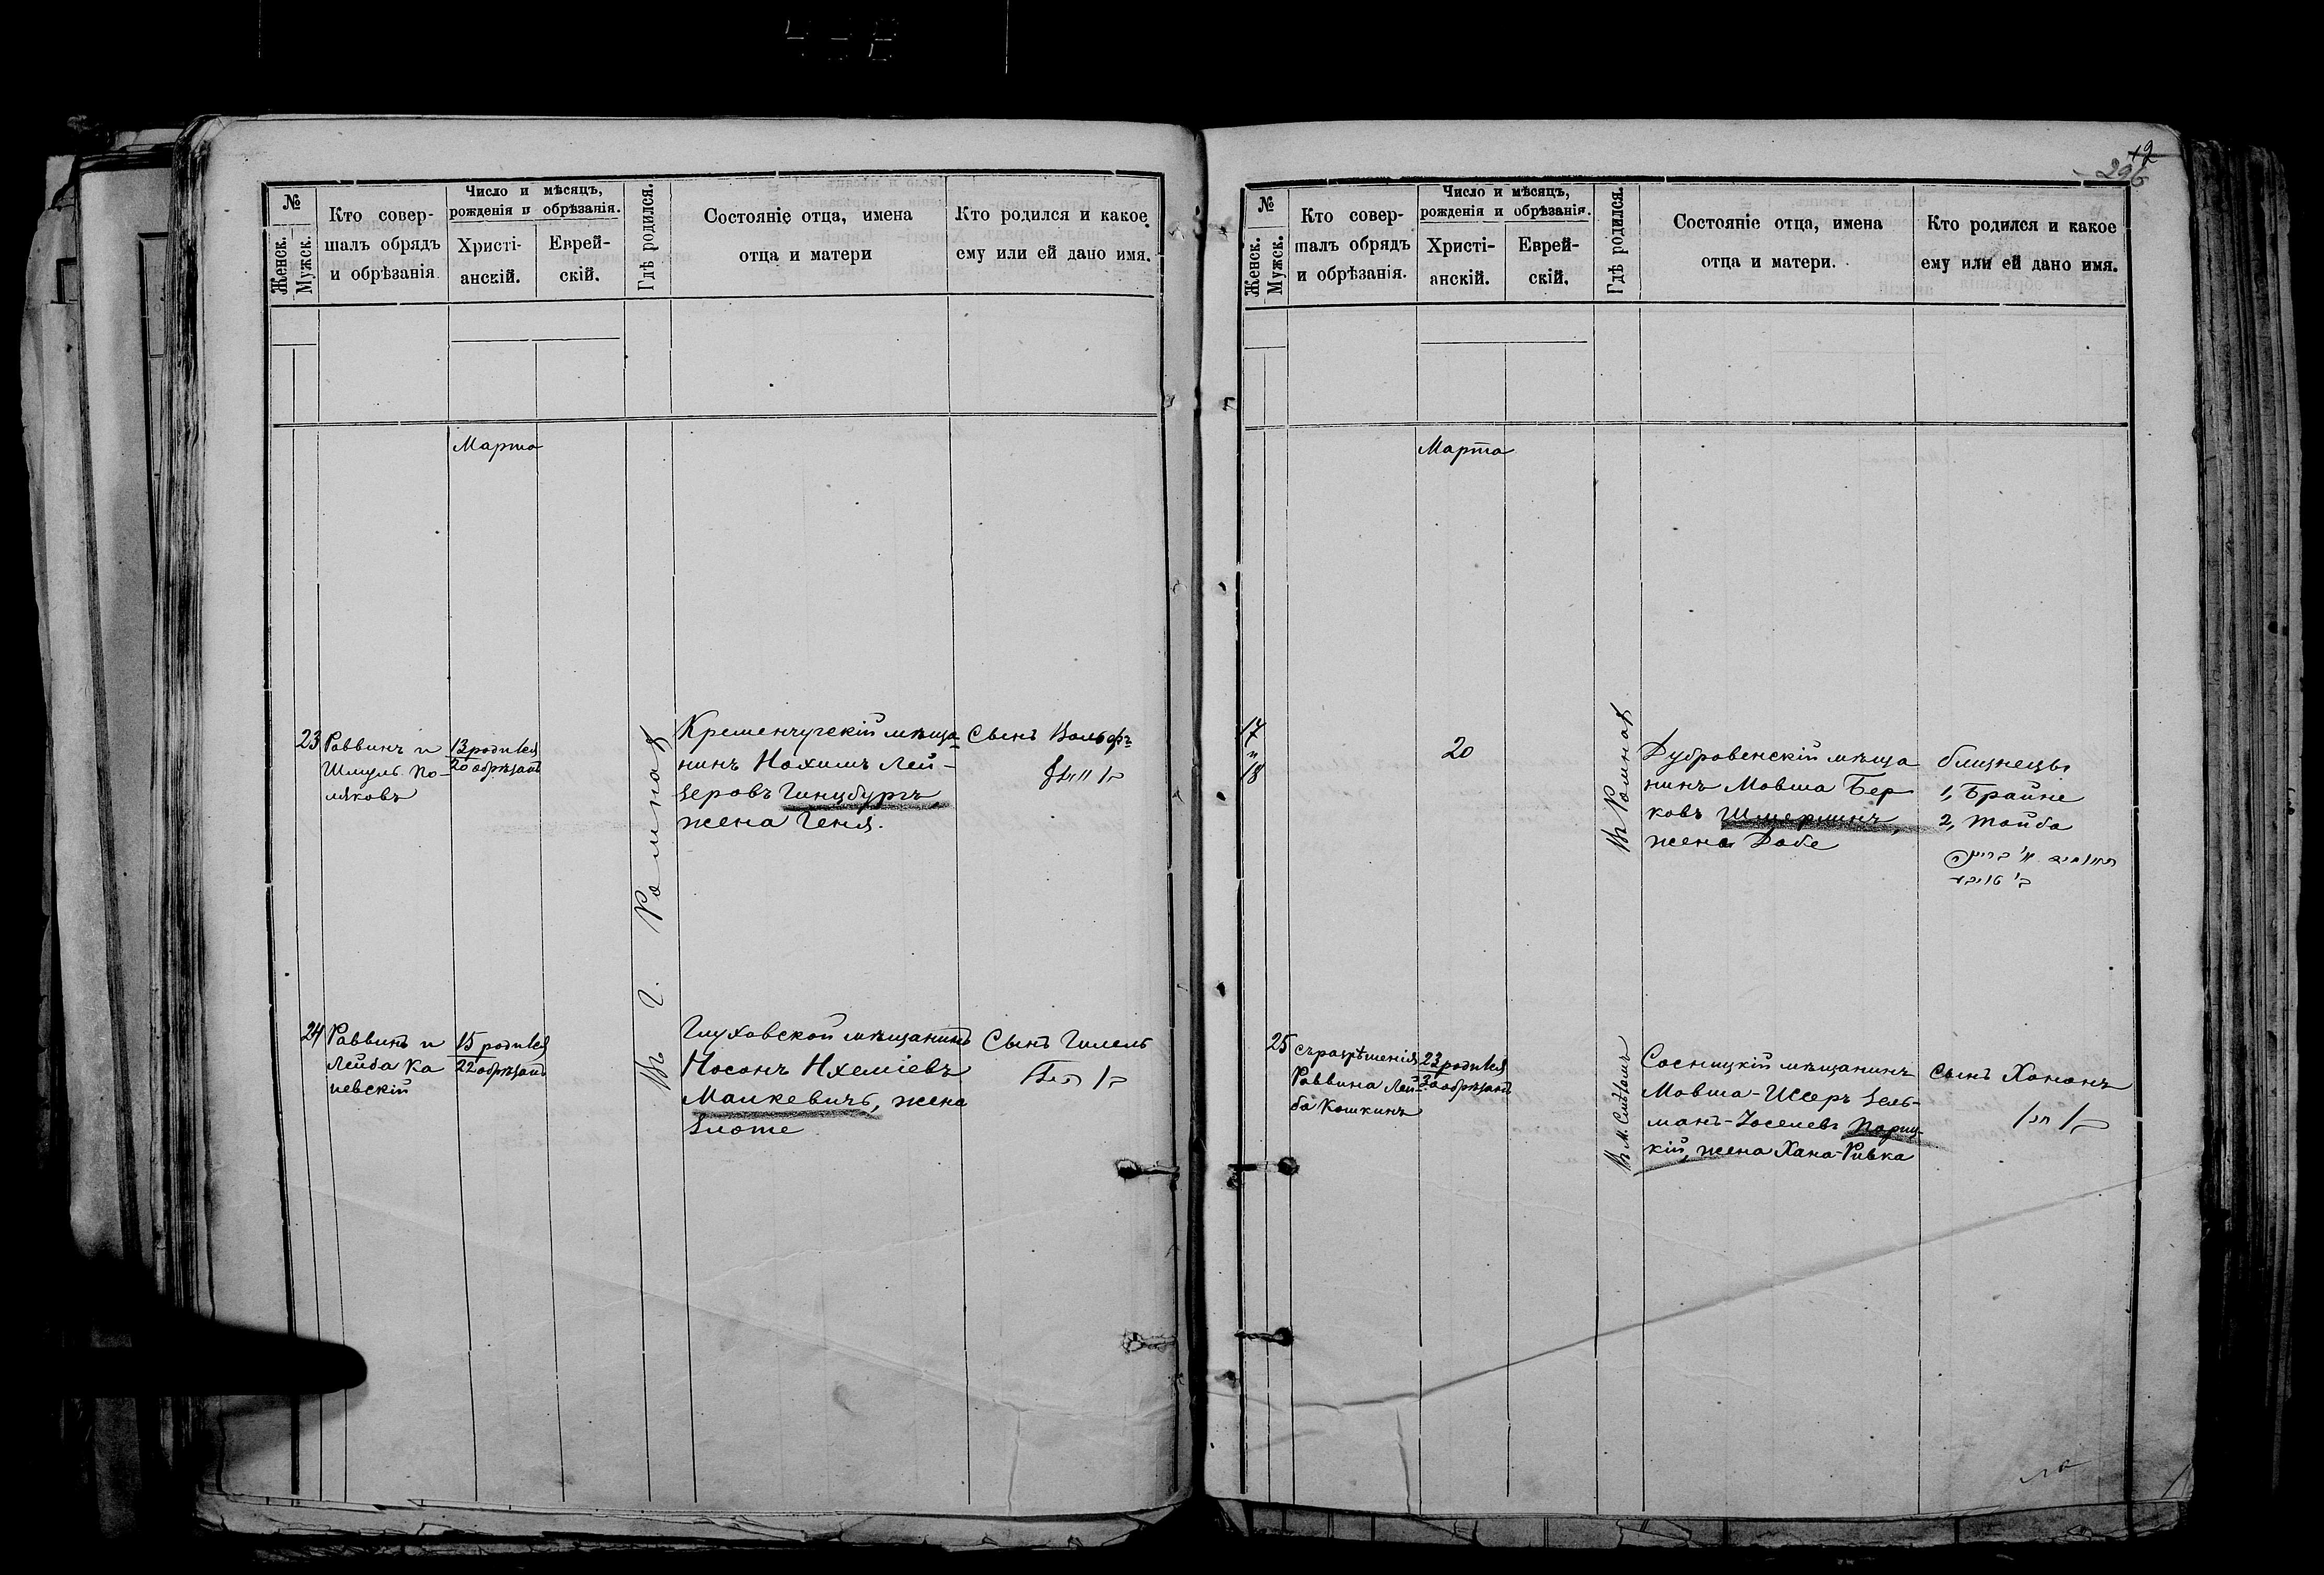 №
Женск.
Мужск.
Кто совер-
шалъ обрядъ
и обрѣзанія
Число и мѣсяцъ,
рожденія и обрѣзанія.
Христі-
анскій.
Еврей-
скій.
Гдѣ родился.
Состояніе отца, имена
отца и матери
Кто родился и какое
ему или ей дано имя.
Марта
23
Раввинъ и
Шмуль По-
ляковъ
13 родился
20 обрѣзанъ
Въ г. Ромнахъ
Кременчугскій мѣща-
нинъ Нохимъ Лей-
зеровъ Гинцбургъ,
жена Геня.
Сынъ Вольфъ
24
Раввинъ и
Лейба Ка
невскій
15 родился
22 обрѣзанъ
Глуховской мѣщанинъ
Носонъ Нхеміевъ
Малкевичъ, жена
Злоте
Сынъ Гилель
בן הלל
12
296
№
Женск.
Мужск.
Кто совер-
шалъ обрядъ
и обрѣзанія.
Число и мѣсяцъ,
рожденія и обрѣзанія.
Христі-
анскій.
Еврей-
скій.
Гдѣ родился.
Состояніе отца, имена
отца и матери.
Кто родился и какое
ему или ей дано имя.
Марта
17
"
18
20
Въ Ромнахъ
Дубровенскій мѣща
нинъ Мовша Бер
ковъ
жена Добе
близнецы
1, Брайне
2, Тойба
25
съ разрѣшенія
Раввина Лей-
ба Кошкинъ
23 родился
30 обрѣзанъ
Въ М. Смѣломъ
Сосницкій мѣщанинъ
Мовша-Иссеръ Зель-
манъ-Іоселевъ Париц-
кій, жена Хана-Ривка
Сынъ Хононъ
בן חנן